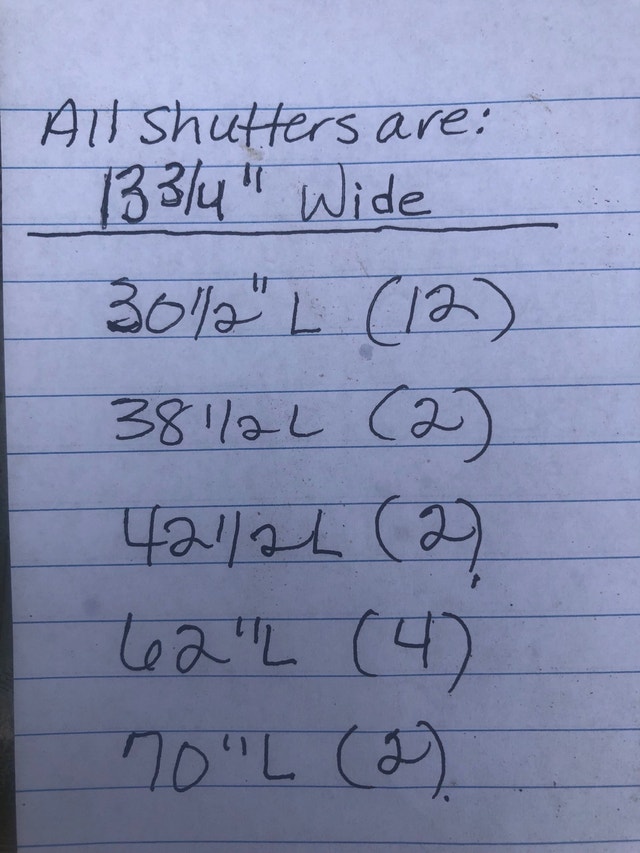 All shutters are:
13 3/4" Wide
30 1/2" L (12)
38 1/2 L (2)
42 1/2 L (2)
62" L (4)
70" L (2)